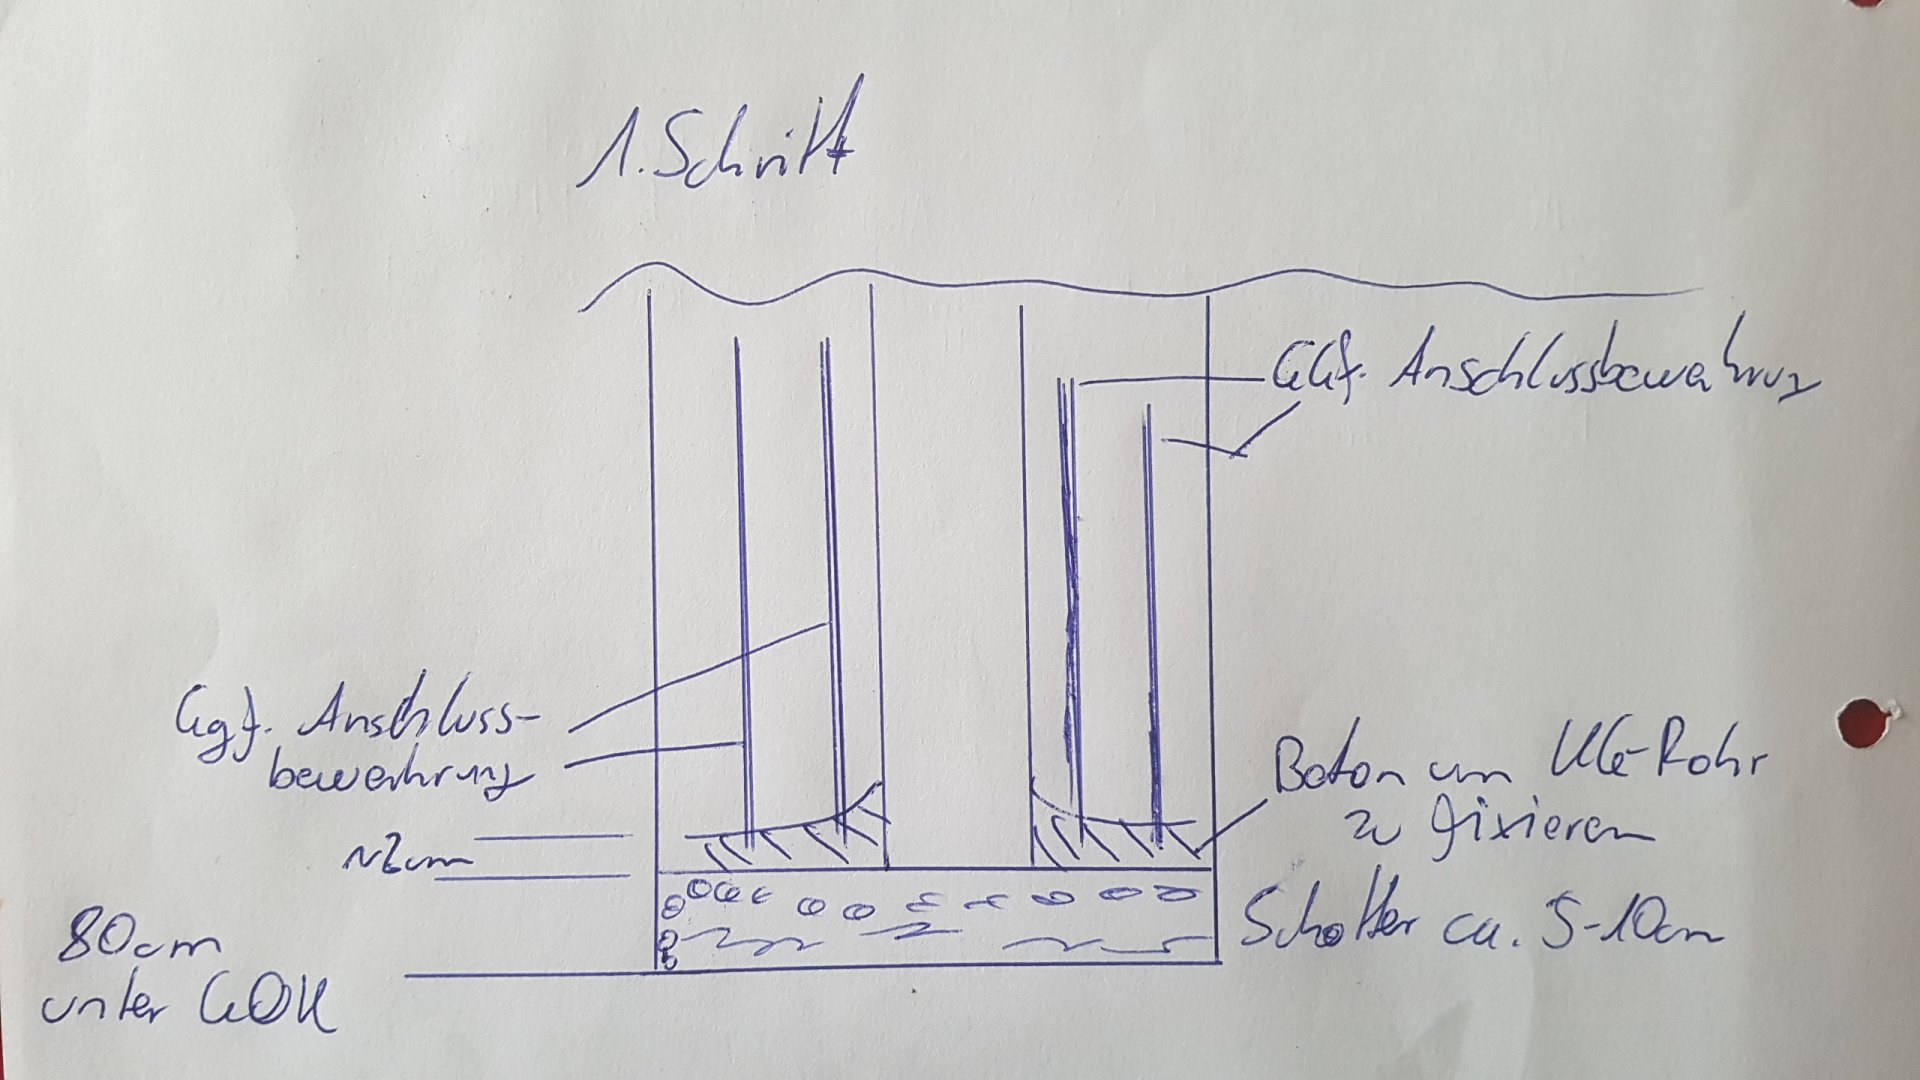 1. Schritt
GGf. Anschlussbewehrung
Ggf. Anschluss-
bewehrung
~2cm
Beton um KG-Rohr
zu fixieren
Schotter ca. 5-10cm
80cm
unter GOK